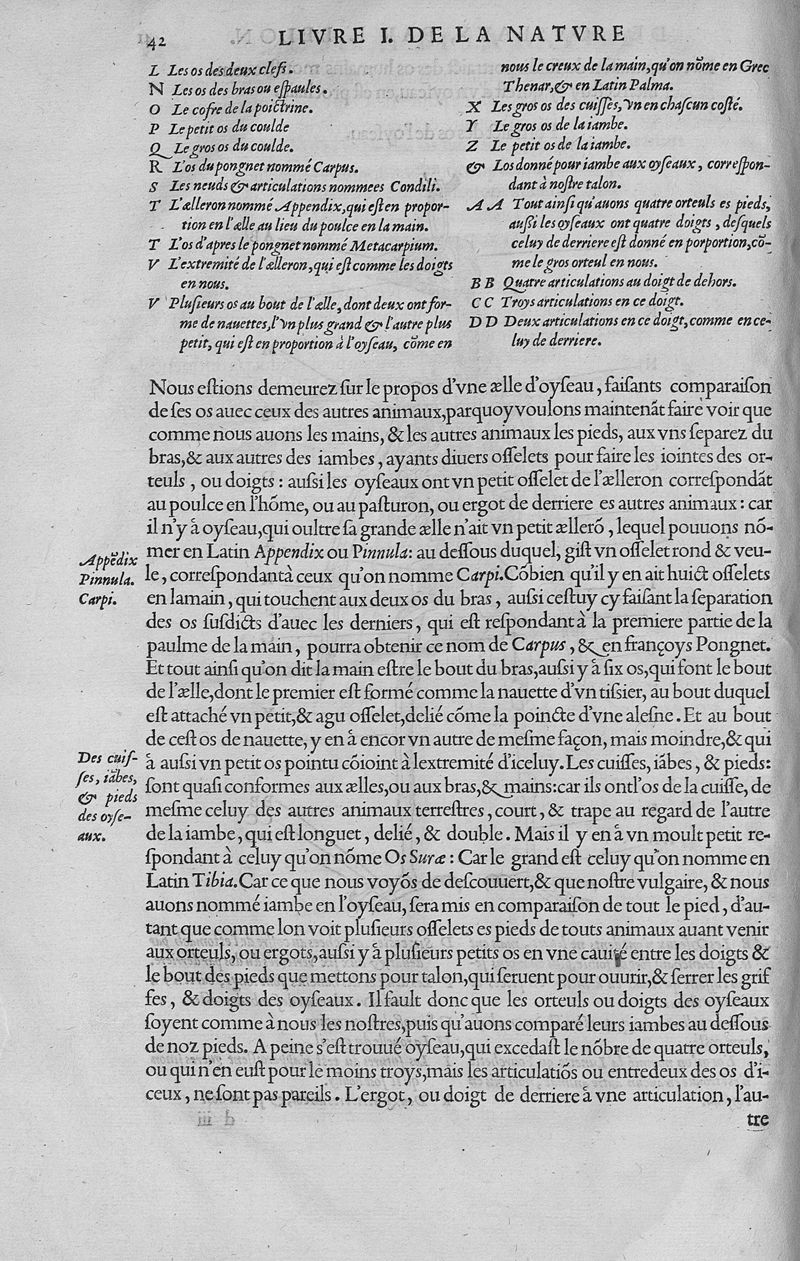 42 LIVRE I. DE LA NATVRE
L Les os des deux clefs.
N Les os des bras ou espaules.
O Le cofre de la poictrine.
P Le petit os du coulde
Q Le gros os du coulde.
R L'os du pongnet nommé Carpus.
S Les neuds & articulations nommees Condili.
T L'ælleron nommé Appendix, qui est en propor-
tion en l'ælle au lieu du poulce en la main.
T L'os d'apres le pongnet nommé Metacarpium.
V L'extremité de l'ælleron, qui est comme les doigts
en nous.
V Plusieurs os au bout de l'ælle, dont deux ont for-
me de nauettes, l'vn plus grand & l'autre plus
petit, qui est en proportion à l'oyseau, cõme en
nous le creux de la main, qu'on nõme en Grec
Thenar, & en Latin Palma.
X Les gros os des cuisses, vn en chascun costé.
Y Le gros os de la iambe.
Z Le petit os de la iambe.
& Los donné pour iambe aux oyseaux, correspon-
dant à nostre talon.
A A Tout ainsi qu'auons quatre orteuls es pieds,
aussi les oyseaux ont quatre doigts, desquels
celuy de derriere est donné en porportion, cõ-
me le gros orteul en nous.
B B Quatre articulations au doigt de dehors.
C C Troys articulations en ce doigt.
D D Deux articulations en ce doigt, comme en ce-
luy de derriere.
Nous estions demeurez sur le propos d'vne ælle d'oyseau, faisants comparaison
de ses os auec ceux des autres animaux, parquoy voulons maintenãt faire voir que
comme nous auons les mains, & les autres animaux les pieds, aux vns separez du
bras, & aux autres des iambes, ayants diuers osselets pour faire les iointes des or-
teuls, ou doigts: aussi les oyseaux ont vn petit osselet de l'ælleron correspondãt
au poulce en l'hõme, ou au pasturon, ou ergot de derriere es autres animaux: car
il n'y à oyseau, qui oultre sa grande ælle n'ait vn petit ællerõ, lequel pouuons nõ-
mer en Latin Appendix ou Pinnula: au dessous duquel, gist vn osselet rond & veu-
Appẽdix
Pinnula.
Carpi.
le, correspondant à ceux qu'on nomme Carpi. Cõbien qu'il y en ait huict osselets
en lamain, qui touchent aux deux os du bras, aussi cestuy cy faisant la separation
des os susdicts d'auec les derniers, qui est respondant à la premiere partie de la
paulme de la main, pourra obtenir ce nom de Carpus, & en françoys Pongnet.
Et tout ainsi qu'on dit la main estre le bout du bras, aussi y à six os, qui font le bout
de l'ælle, dont le premier est formé comme la nauette d'vn tissier, au bout duquel
est attaché vn petit, & agu osselet, delié cõme la poincte d'vne alesne. Et au bout
de cest os de nauette, y en à encor vn autre de mesme façon, mais moindre, & qui
Des cuis-
ses, iãbes,
& pieds
des oyse-
aux.
à aussi vn petit os pointu cõioint à lextremité d'iceluy. Les cuisses, iãbes, & pieds:
sont quasi conformes aux ælles, ou aux bras, & mains: car ils ont l'os de la cuisse, de
mesme celuy des autres animaux terrestres, court, & trape au regard de l'autre
de la iambe, qui est longuet, delié, & double. Mais il y en à vn moult petit re-
spondant à celuy qu'on nõme Os Suræ: Car le grand est celuy qu'on nomme en
Latin Tibia. Car ce que nous voyõs de descouuert, & que nostre vulgaire, & nous
auons nommé iambe en l'oyseau, sera mis en comparaison de tout le pied, d'au-
tant que comme lon voit plusieurs osselets es pieds de touts animaux auant venir
aux orteuls, ou ergots, aussi y à plusieurs petits os en vne cauité entre les doigts &
le bout des pieds que mettons pour talon, qui seruent pour ouurir, & serrer les grif
fes, & doigts des oyseaux. Il fault donc que les orteuls ou doigts des oyseaux
soyent comme à nous les nostres, puis qu'auons comparé leurs iambes au dessous
de noz pieds. A peine s'est trouué oyseau, qui excedast le nõbre de quatre orteuls,
ou qui n'en eust pour le moins troys, mais les articulatiõs ou entredeux des os d'i-
ceux, ne sont pas pareils. L'ergot, ou doigt de derriere à vne articulation, l'au-
tre